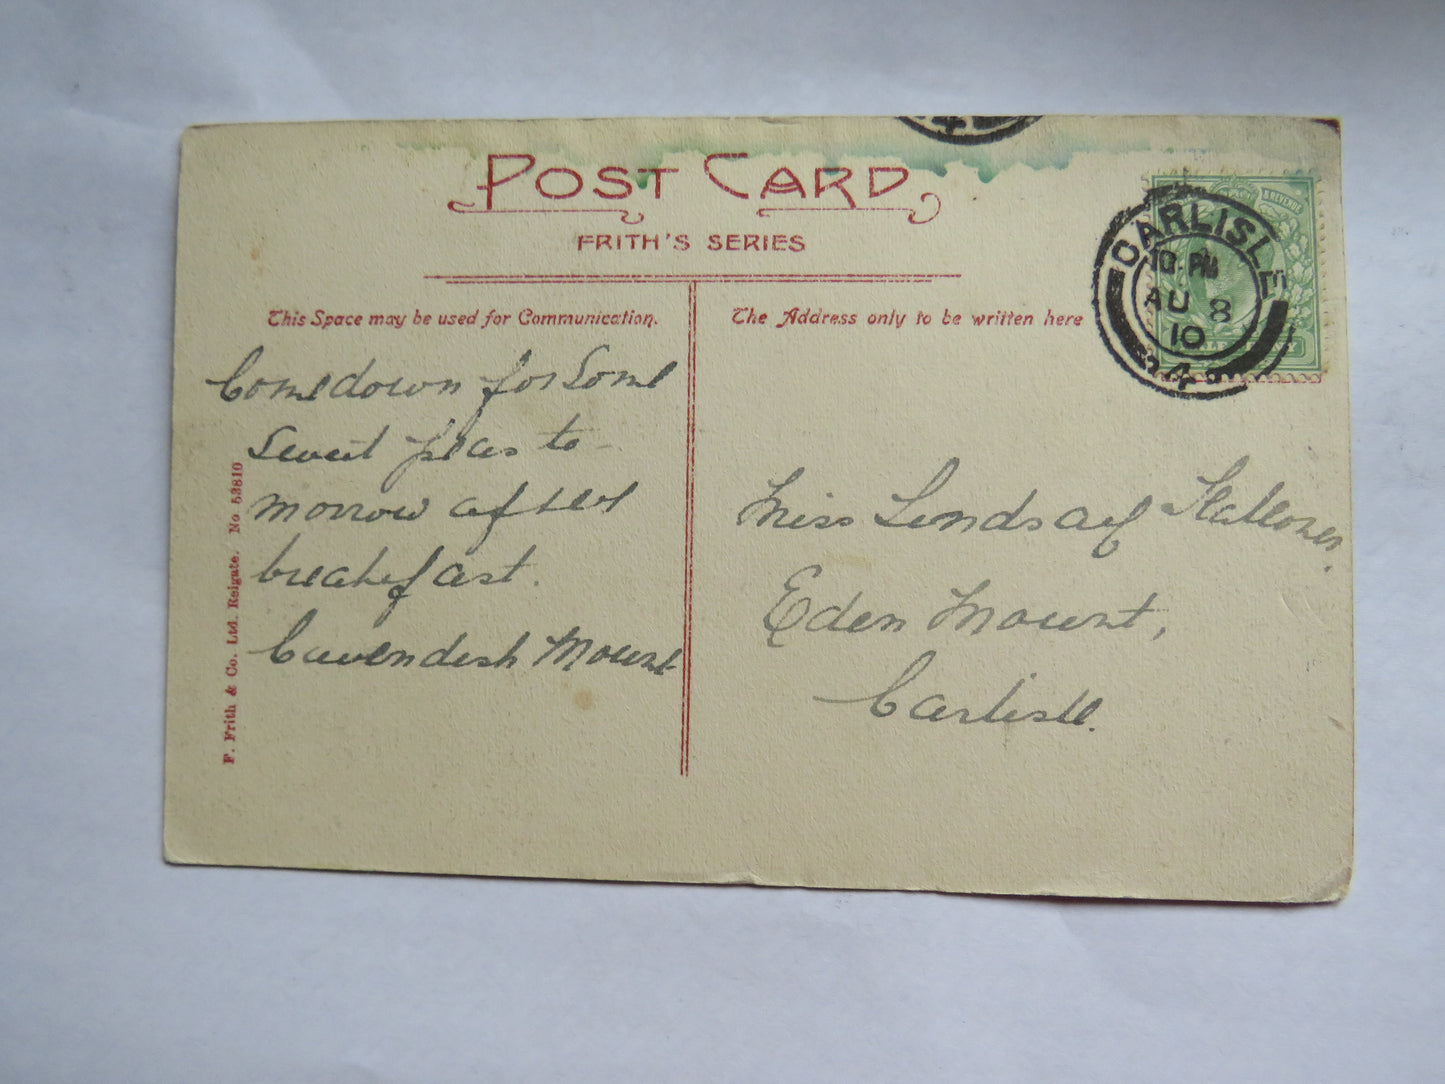 POST CARD
FRITH'S SERIES
This Space may be used for Communication.
The Address only to be written here
Come down for Some
Sweet peas to-
morrow after
breakfast.
Cavendish Mount
F. Frith & Co. Ltd. Reigate. No 53810
CARLISLE
10. PM
AU 8
10
Miss Lindsay
Eden Mount,
Carlisle.